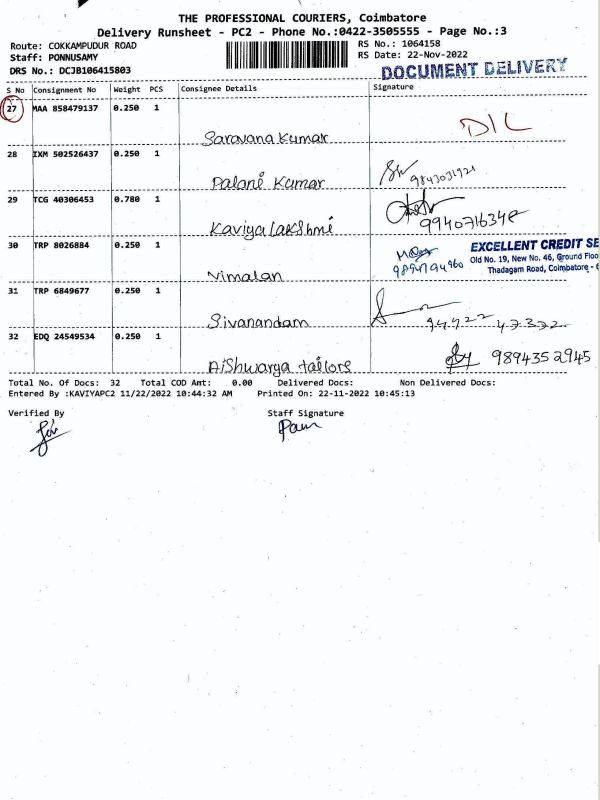 THE PROFESSIONAL COURIERS, Coimbatore
Delivery Runsheet - PC2 - Phone No.:0422-3505555 - Page No.:3
Route: COKKAMPUDUR ROAD
RS No.: 1064158
Staff: PONNUSAMY
RS Date: 22-Nov-2022
DRS No.: DCJB106415803
DOCUMENT DELIVERY
S No Consignment No Weight PCS Consignee Details Signature
27 MAA 858479137 0.250 1
Saravana Kumar D/L
28 IXM 502526437 0.250 1
Palani Kumar
29 TCG 40306453 0.780 1
Kaviya lakshmi
30 TRP 8026884 0.250 1
Nimalan
EXCELLENT CREDIT SE
Old No. 19, New No. 46, Ground Floo
Thadagam Road, Coimbatore - 6
31 TRP 6849677 0.250 1
Sivanandam
32 EDQ 24549534 0.250 1
Aishwarya tailors 9894352945
Total No. Of Docs: 32 Total COD Amt: 0.00 Delivered Docs: Non Delivered Docs:
Entered By :KAVIYAPC2 11/22/2022 10:44:32 AM Printed On: 22-11-2022 10:45:13
Verified By Staff Signature